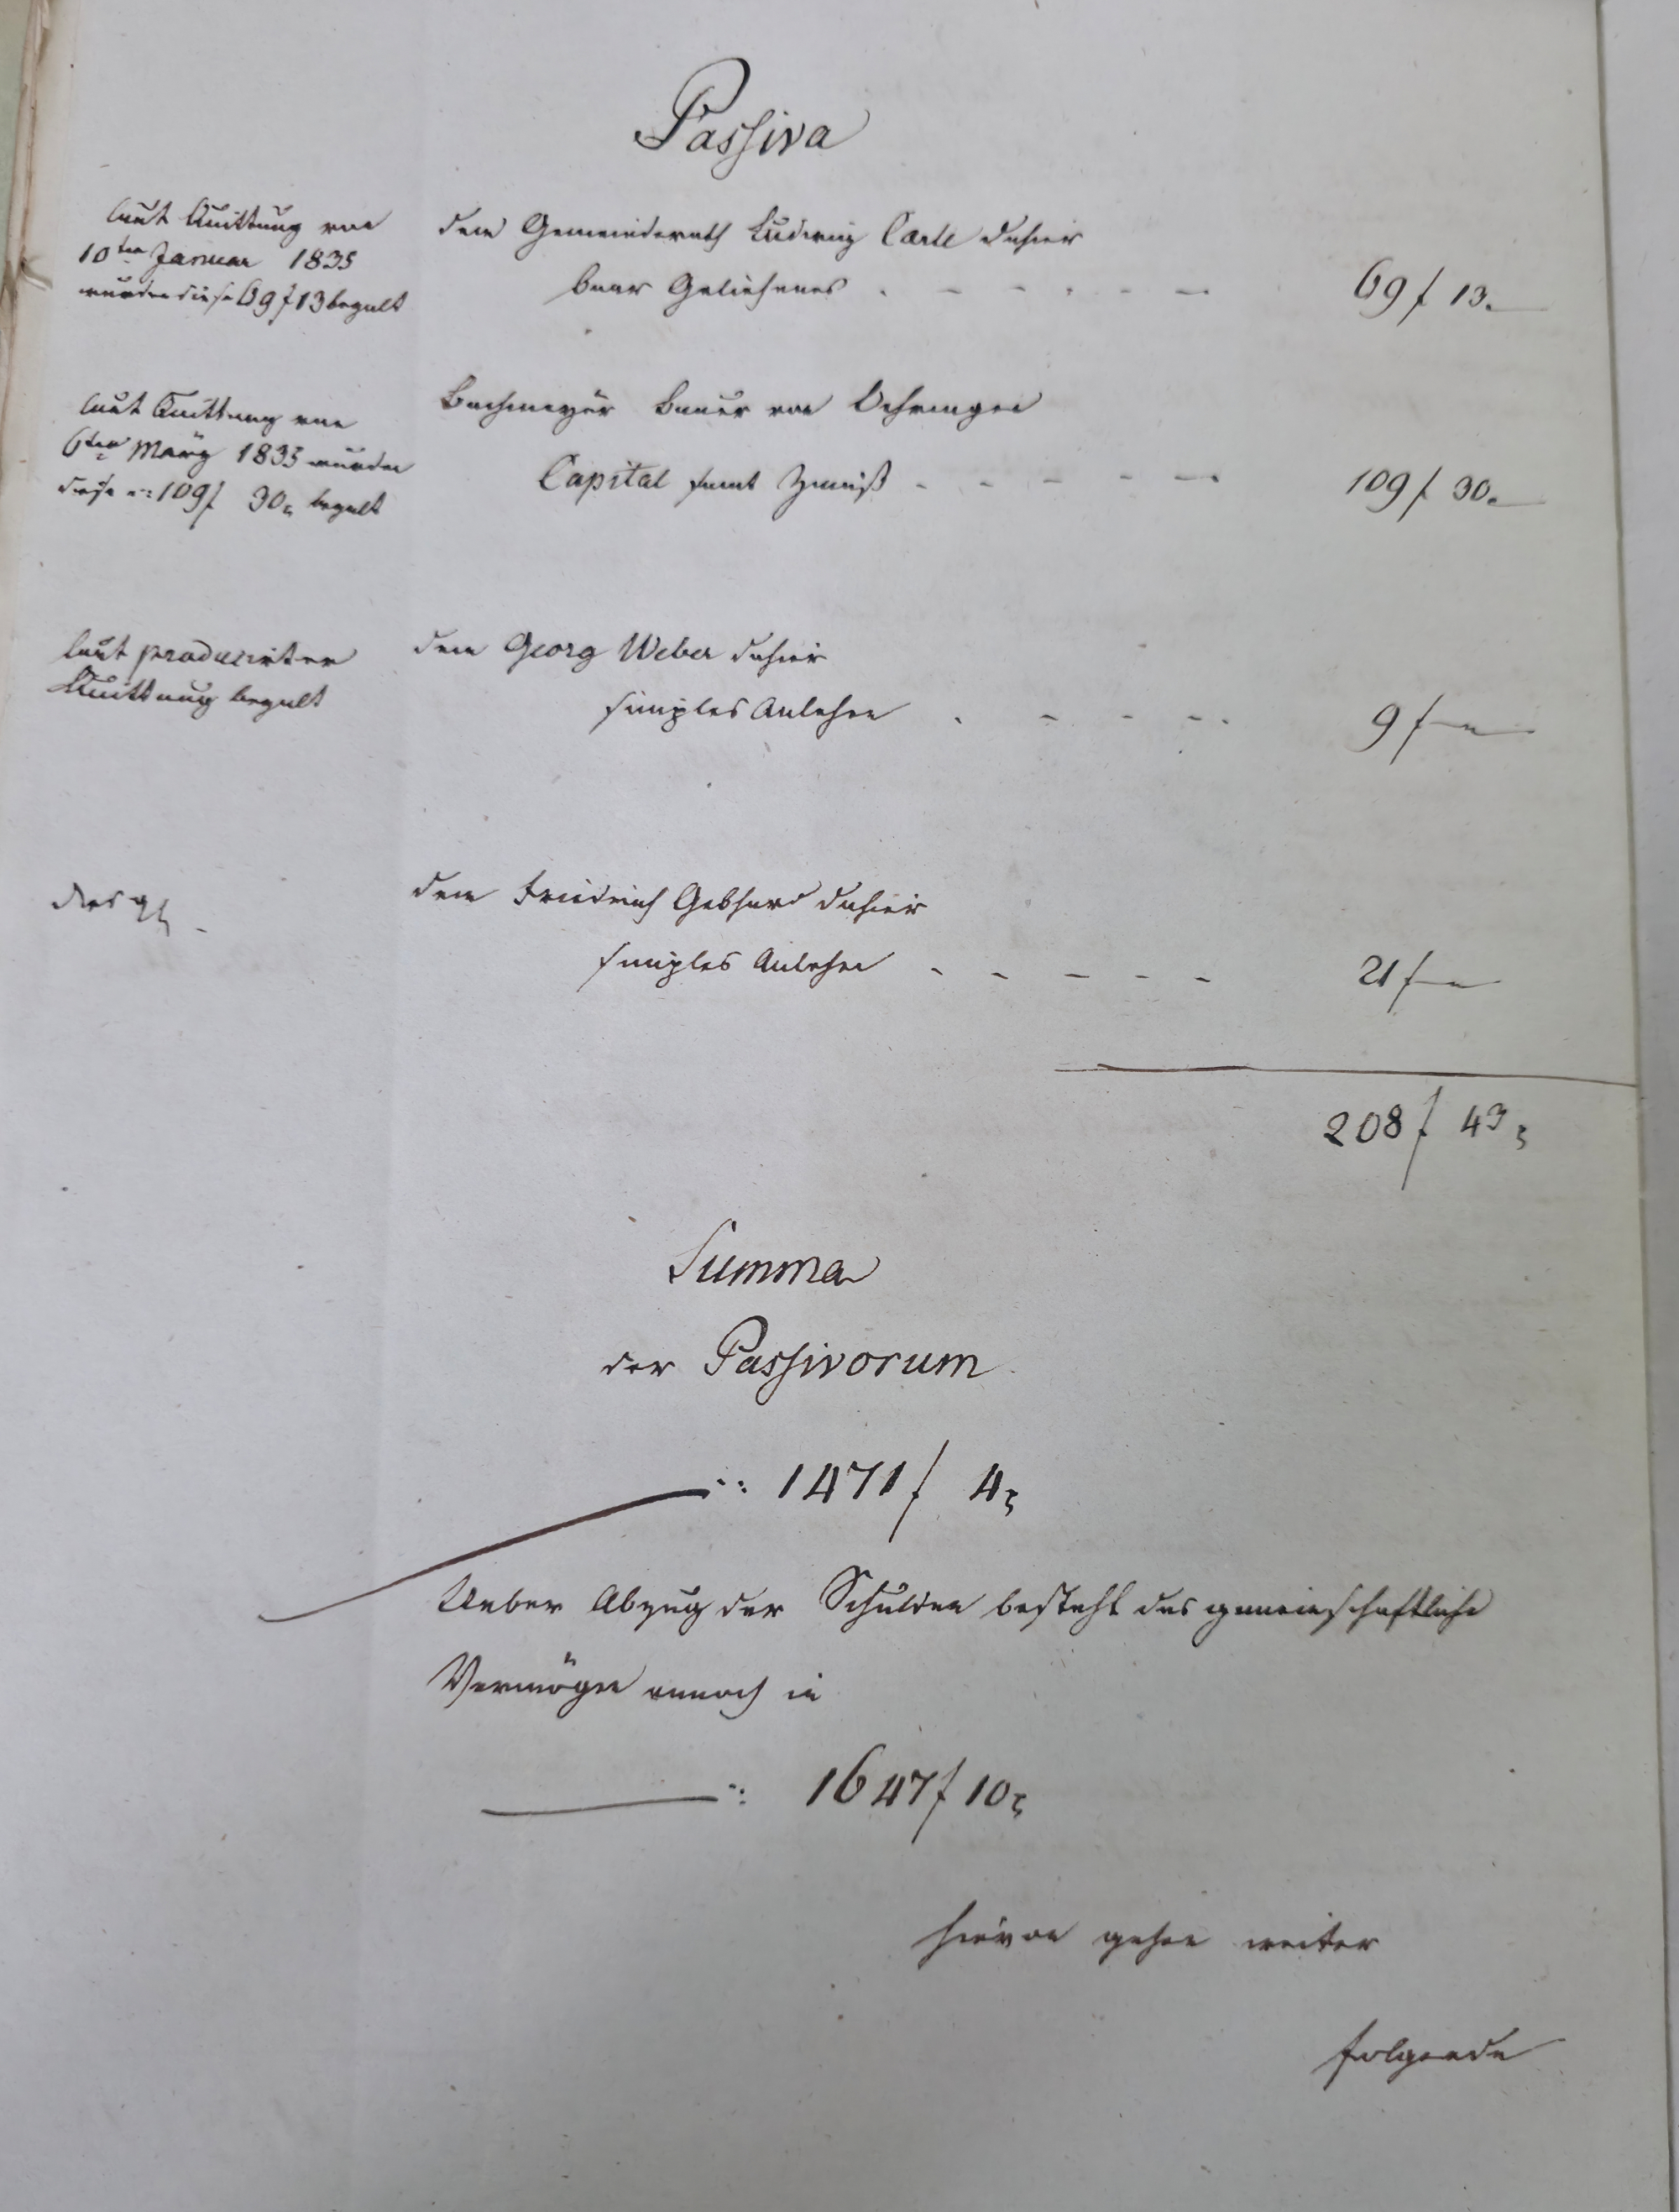 Passiva
laut Quittung von
10ten Januar 1835
wurden diese 69 f 13 bezalt
dem Gemeinderath Ludwig Carle dahier
baar Geliehenes . - - . - - - 69 f 13.
laut Quittung von
6ten März 1835 wurden
diese -: 109 f 30 x bezalt
Bauer von Oehringen
Capital samt Zinnß - - - - - 109 f 30.
laut producirter
Quittung bezalt
dem Georg Weber dahier
simples Anlehen . - - - . 9 f —
desgl.
dem Friedrich Gebhard dahier
simples Anlehen - - - - - 21 f —
208 f 43 x
Summa
der Passivorum
—: 1471 f 4 x
Ueber Abzug der Schulden besteht das gemeinschaftliche
Vermögen annoch in
—: 1647 f 10 x
hievon gehen weiter
folgende